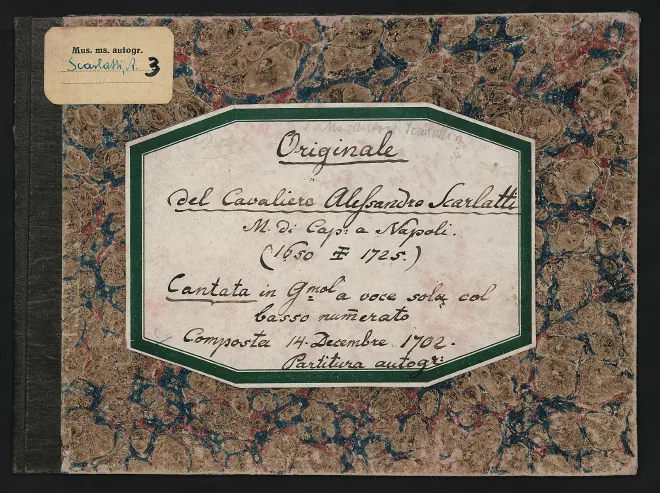 Mus. ms. autogr.
Scarlatti, A. 3
Originale
del Cavaliere Alessandro Scarlatti
M. di Cap: a Napoli.
(1650 ‡ 1725.)
Cantata in G mol a voce sola col
basso numerato
Composta 14. Decembre. 1702.
Partitura autogr: